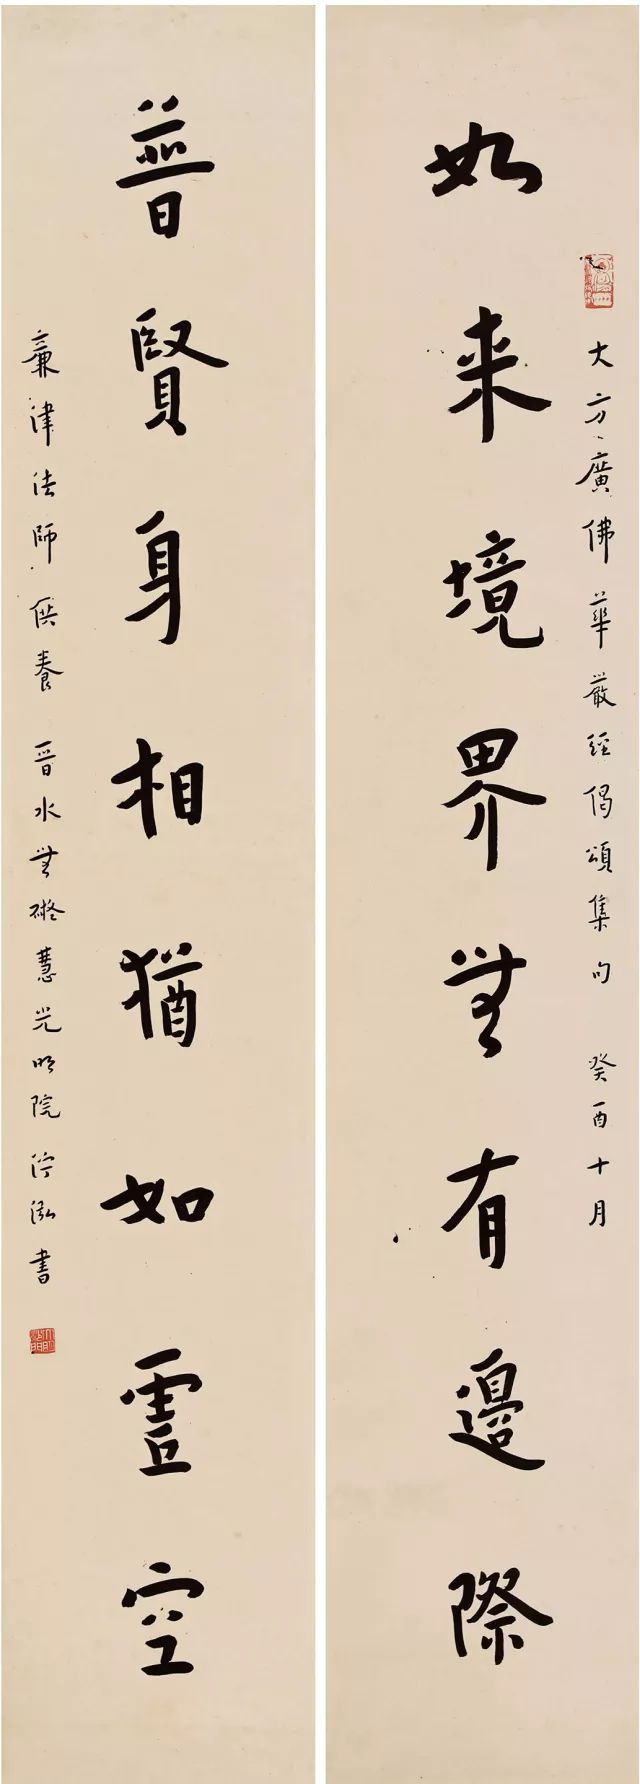 大方廣佛華嚴經偈頌集句 癸酉十月
如来境界無有邊際
普賢身相猶如虛空
亷津法師供養 晉水無礙慧光明院泓書